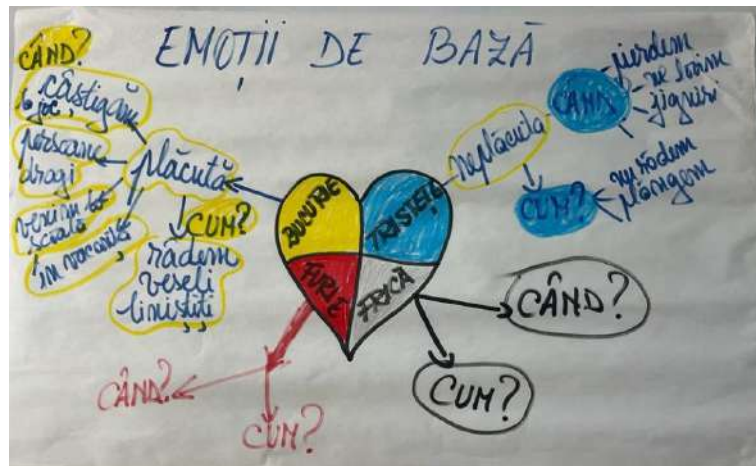 EMOȚII DE BAZĂ
CÂND?
câstigăm
la joc,
persoane
dragi
venim la
școală
în vacanță
plăcută
CUM?
râdem
veseli
liniștiți
BUCURIE
TRISTEȚE
FURIE
FRICĂ
neplăcută
CÂND
pierdem
ne lovim
jigniri
CUM?
nu râdem
plângem
CÂND?
CUM?
CÂND?
CUM?